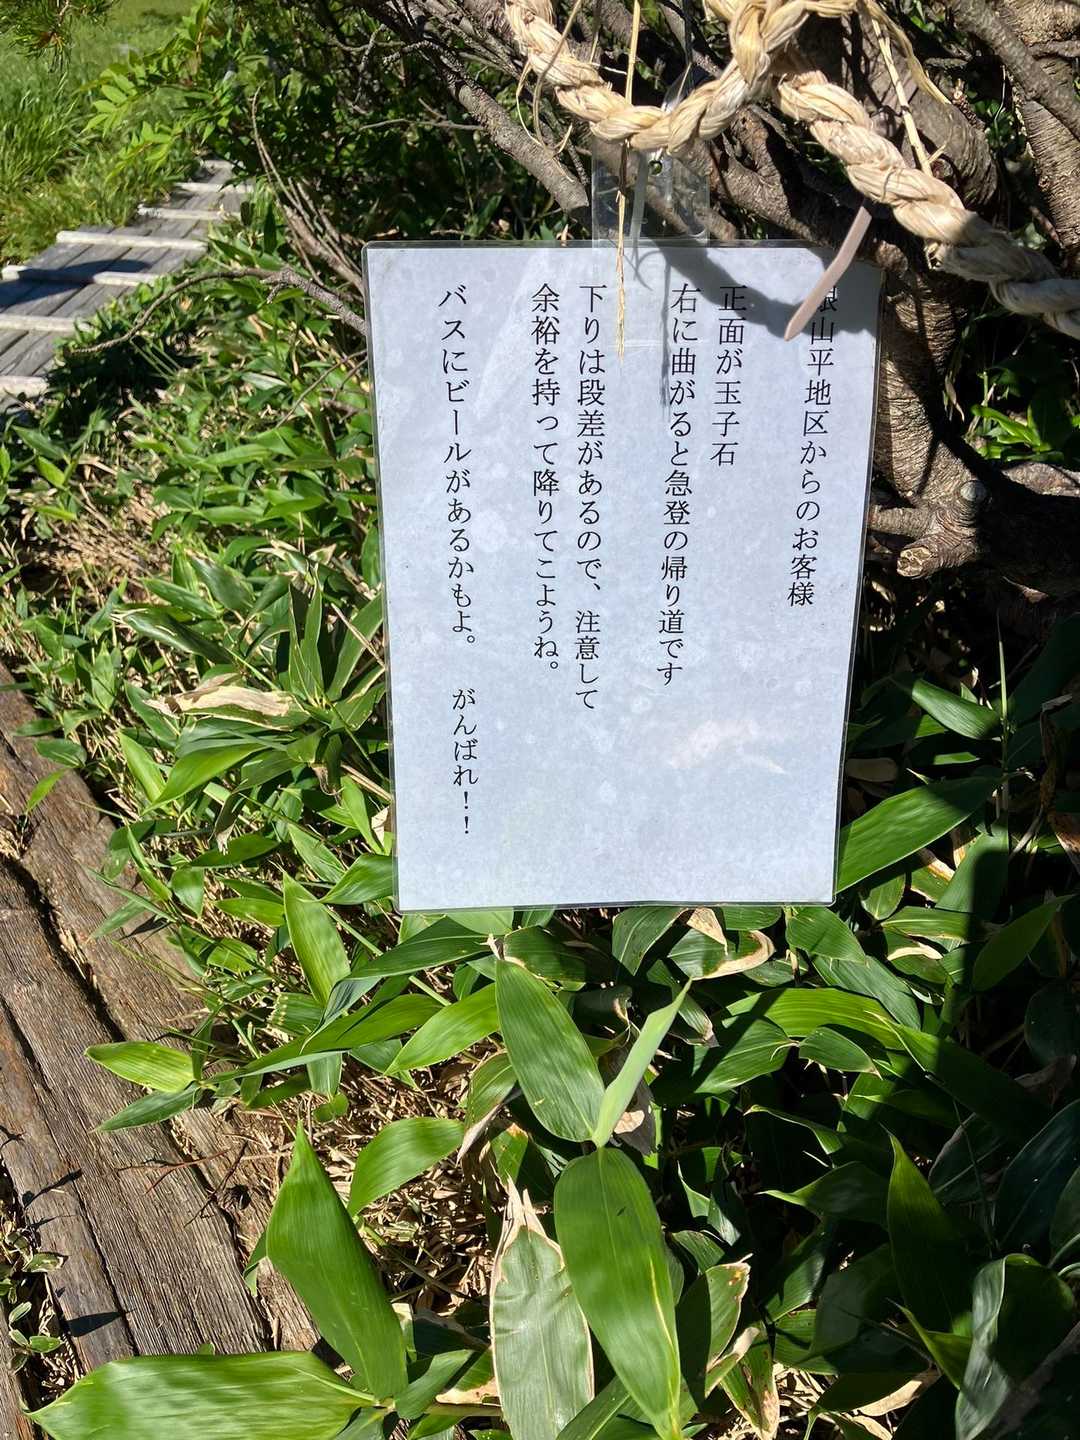 山平地区からのお客様
正面が玉子石
右に曲がると急登の帰り道です
下りは段差があるので、注意して
余裕を持って降りてこようね。
バスにビールがあるかもよ。 がんばれ！！